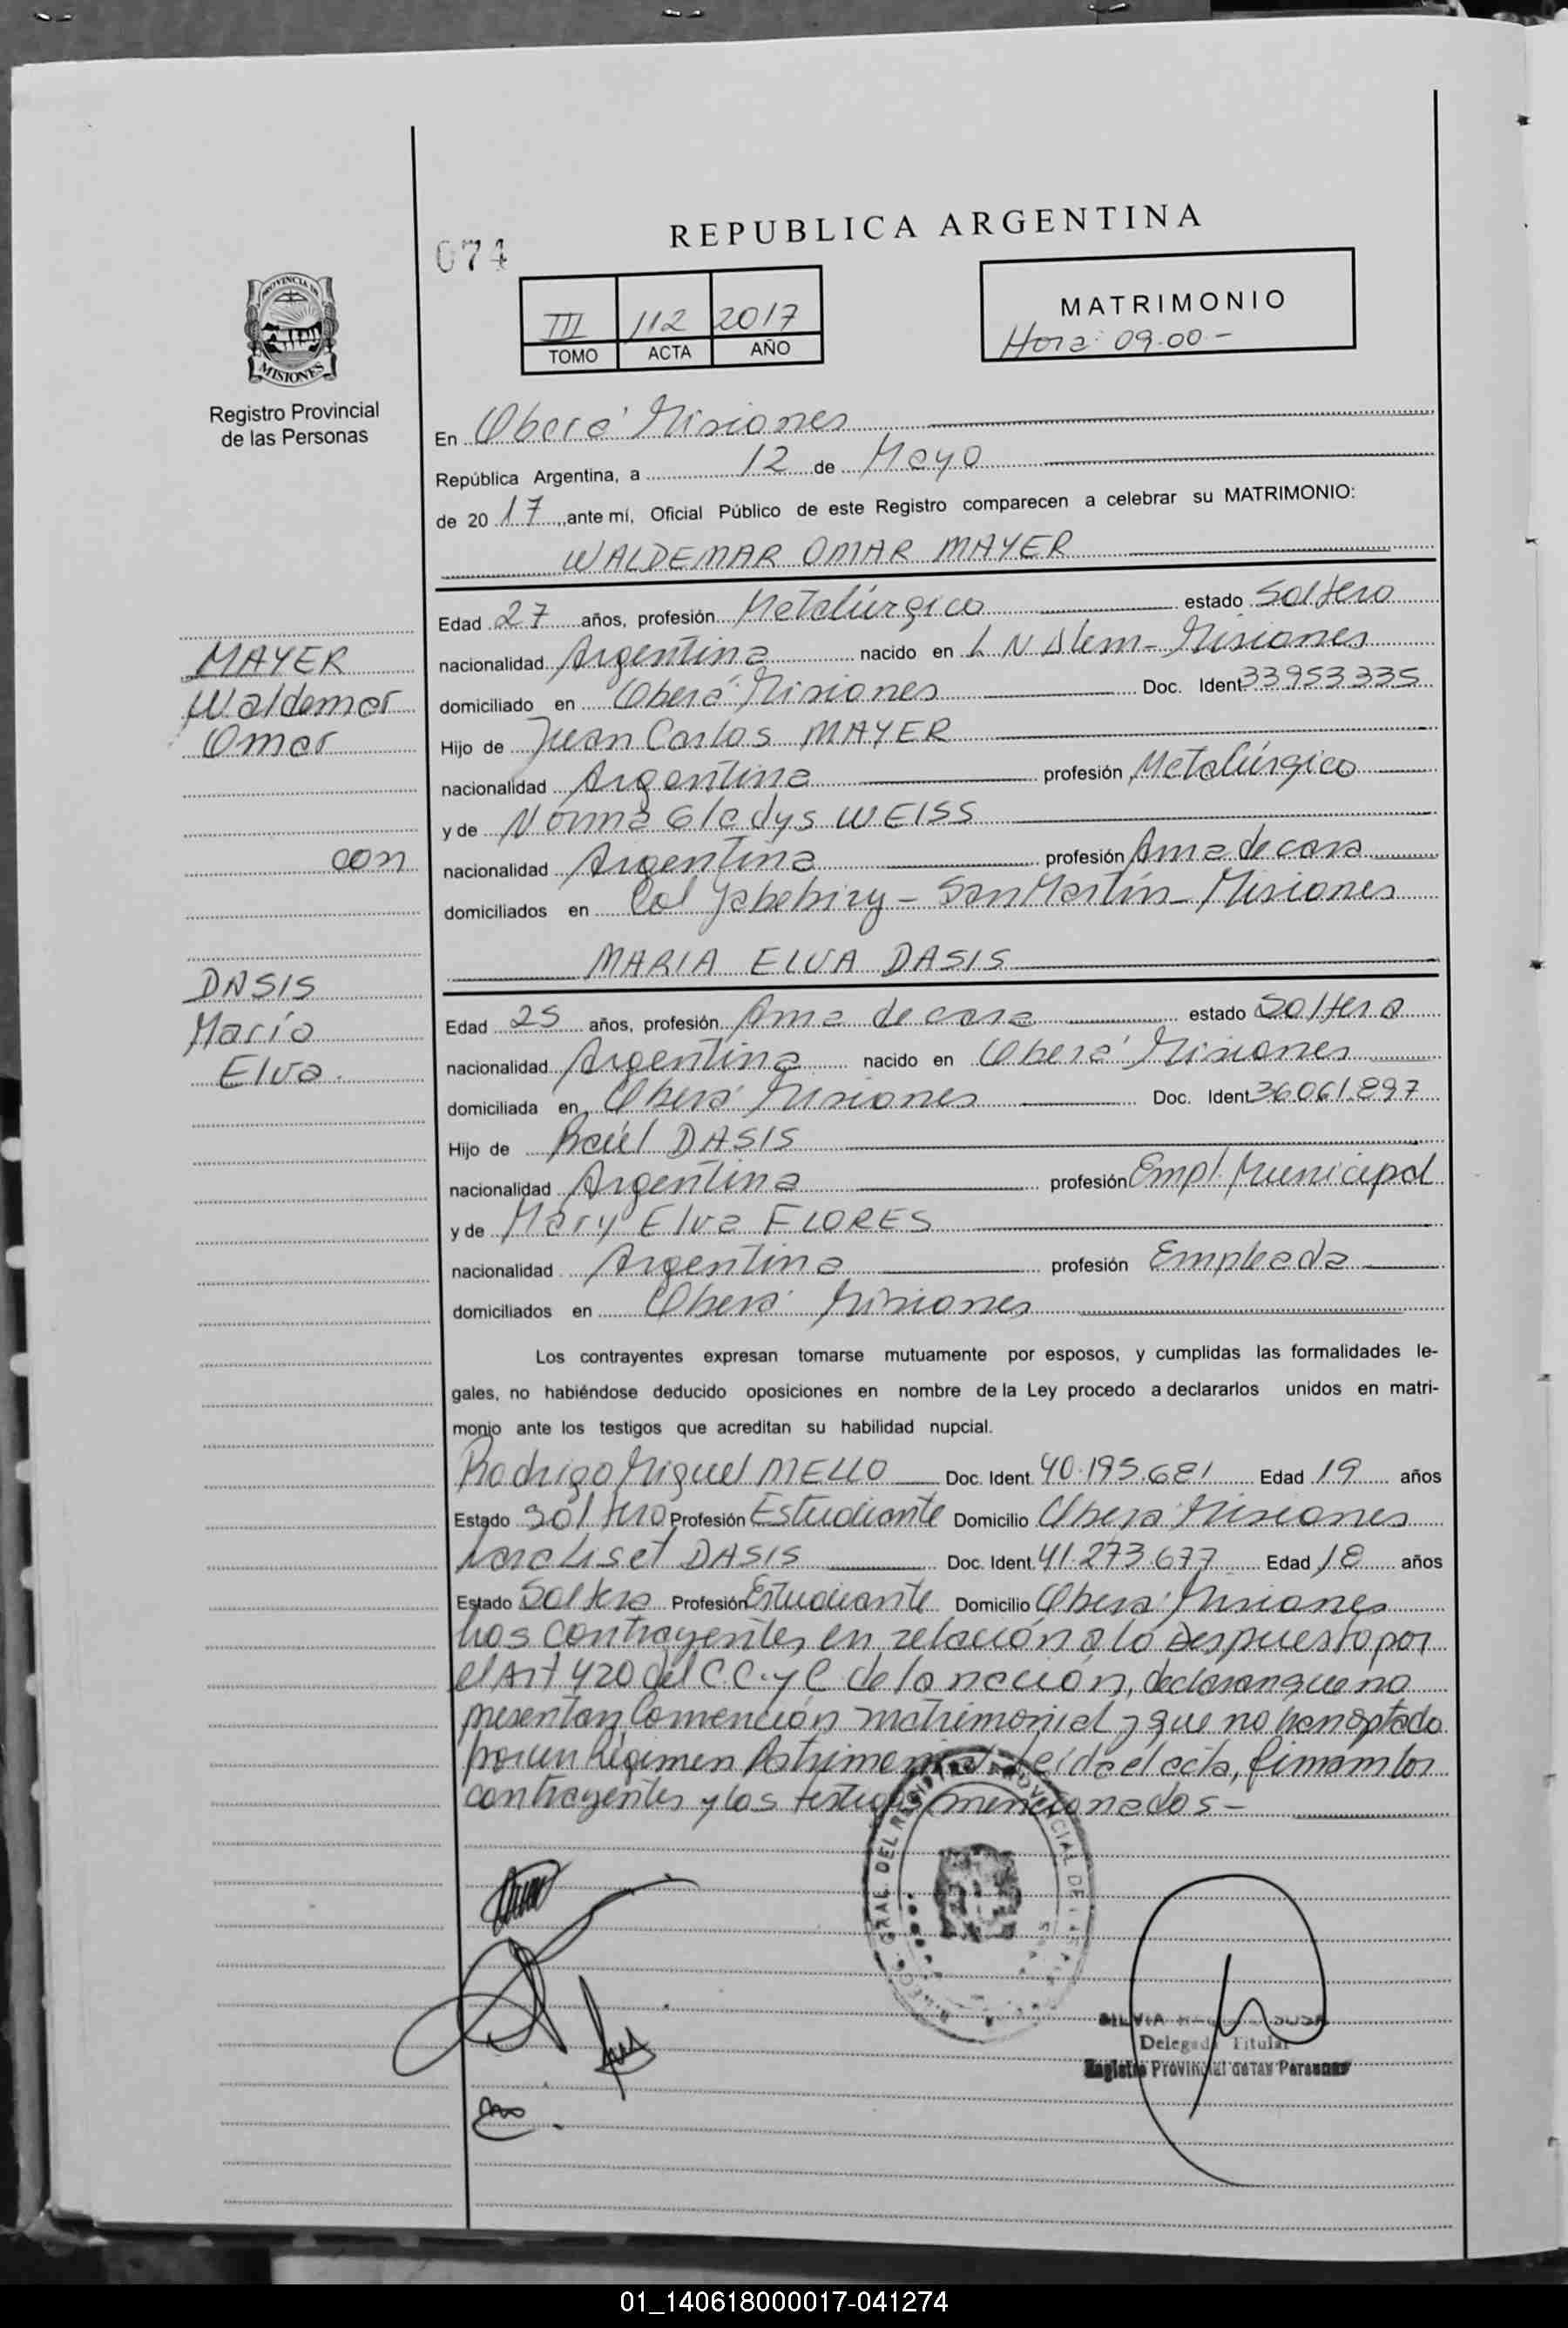 REPUBLICA ARGENTINA
074
PROVINCIA DE
MISIONES
Registro Provincial
de las Personas
III 112 2017
TOMO ACTA AÑO
MATRIMONIO
Hora: 09.00 -
En Oberá Misiones
República Argentina, a 12 de Mayo
de 20 17, ante mí, Oficial Público de este Registro comparecen a celebrar su MATRIMONIO:
WALDEMAR OMAR MAYER
Edad 27 años, profesión Metalúrgico estado Soltero
nacionalidad Argentina nacido en L N Alem - Misiones
domiciliado en Oberá Misiones Doc. Ident 33953335
Hijo de Juan Carlos MAYER
nacionalidad Argentina profesión Metalúrgico
y de Norma Gladys WEISS
nacionalidad Argentina profesión Ama de casa
domiciliados en Col Yabebiry - San Martín - Misiones
MARIA ELVA DASIS
Edad 25 años, profesión Ama de casa estado Soltera
nacionalidad Argentina nacido en Oberá Misiones
domiciliada en Oberá Misiones Doc. Ident 36.061.897
Hijo de Raúl DASIS
nacionalidad Argentina profesión Empl. Municipal
y de Mary Elva FLORES
nacionalidad Argentina profesión Empleada
domiciliados en Oberá Misiones
MAYER
Waldemar
Omar
con
DASIS
María
Elva.
Los contrayentes expresan tomarse mutuamente por esposos, y cumplidas las formalidades le-
gales, no habiéndose deducido oposiciones en nombre de la Ley procedo a declararlos unidos en matri-
monio ante los testigos que acreditan su habilidad nupcial.
Rodrigo Miguel MELLO Doc. Ident. 40.195.681 Edad 19 años
Estado Soltero Profesión Estudiante Domicilio Oberá Misiones
Liset DASIS Doc. Ident. 41.273.677 Edad 18 años
Estado Soltera Profesión Estudiante Domicilio Oberá Misiones
Los contrayentes, en relación a lo Despuesto por
el Art 420 del C.C. y C de la nación, declaran que no
presentan Convención matrimonial y que no han optado
por un Régimen Patrimonial. Leída el acta, firman los
contrayentes y los testigos mencionados -
SILVIA SOSA
Delegada Titular
Registro Provincial de las Personas
01_140618000017-041274